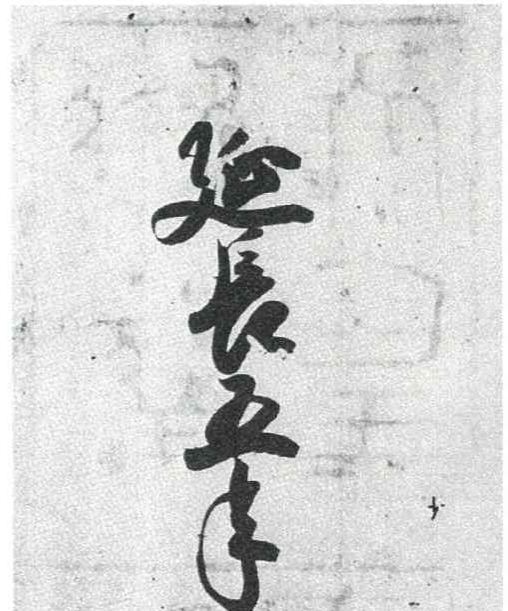 延長五年